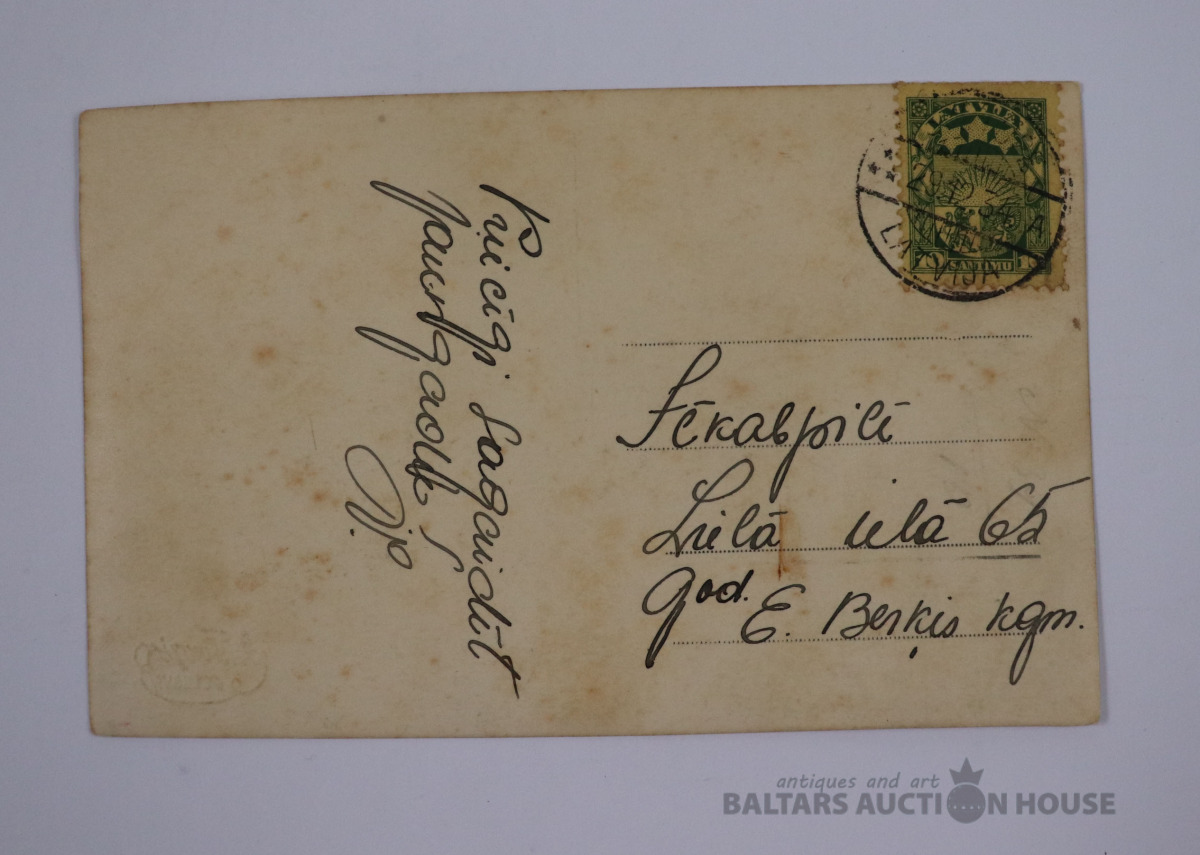 Priecīgi sagaidīt
Jaungadu
LATVIJA
10 SANTIMU 10
LATVIJA
Jēkabpilī
Lielā ielā 65
God.
E. Berķis kgm.
antiques and art
BALTARS AUCTION HOUSE